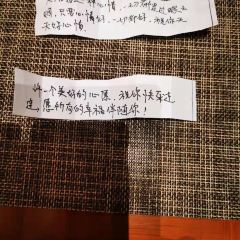 情,只要心情好,一切都好,祝你天
天好心情。
许一个美好的心愿,祝你快乐连
连,愿所有的幸福伴随你!